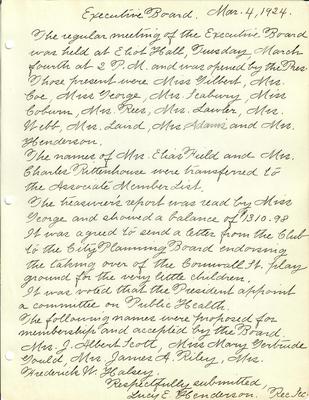 Executive Board. Mar. 4, 1924.
The regular meeting of the Executive Board
was held at Eliot Hall, Tuesday, March
fourth at 2 P.M. and was opened by the Pres.
Those present were Miss Gilbert, Mrs.
Coe, Miss George, Mrs. Seabury, Miss
Coburn, Mrs. Rees, Mrs. Lawler, Mrs.
Webb, Mrs. Laird, Mrs Adams and Mrs.
Henderson.
The names of Mrs. Elias Field and Mrs.
Charles Rittenhouse were transferred to
the Associate Member List.
The treasurer's report was read by Miss
George and showed a balance of 1310.98
It was agreed to send a letter from the Club
to the City Planning Board endorsing
the taking over of the Cornwall St. play
ground for the very little children.
It was voted that the President appoint
a committee on Public Health.
The following names were proposed for
membership and accepted by the Board
Mrs. J. Albert Scott, Miss Mary Gertrude
Gould, Mrs. James A. Riley, Mrs.
Frederick W. Halsey.
Respectfully submitted,
Lucy E. Henderson. Rec. Sec.